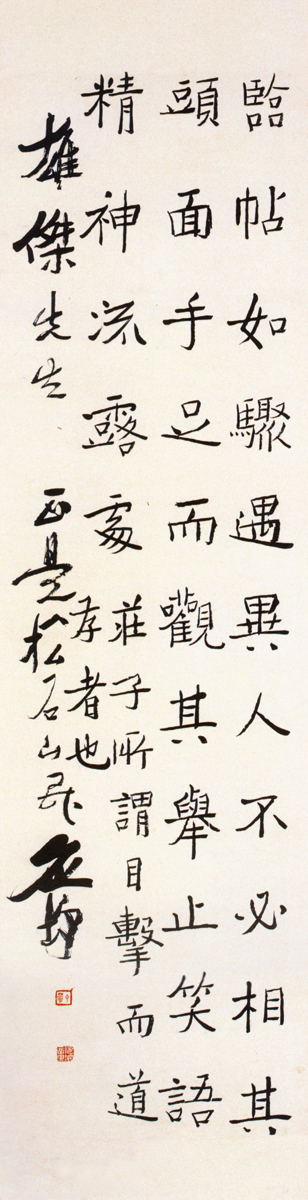 臨帖如驟遇異人不必相其
頭面手足而觀其舉止笑語
精神流露處莊子所謂目擊而道
存者也
雄傑先生 正是 松石山